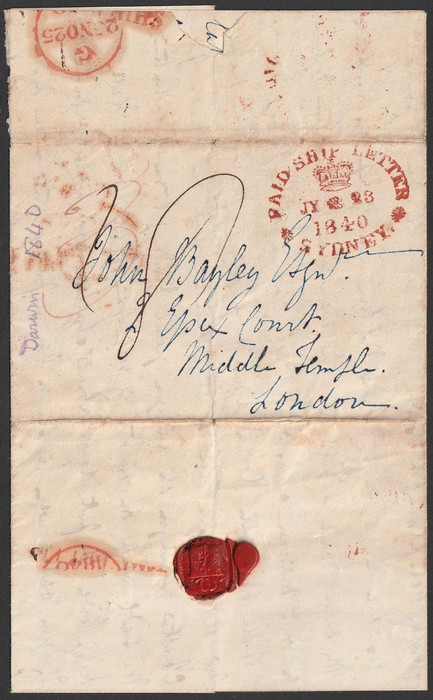 PAID SHIP LETTER
JY 23
1840
SYDNEY.
John Bayley Esqr.
2 Essex Court.
Middle Temple.
London.
Darwin 1840
G
25NO25
SHIP
184